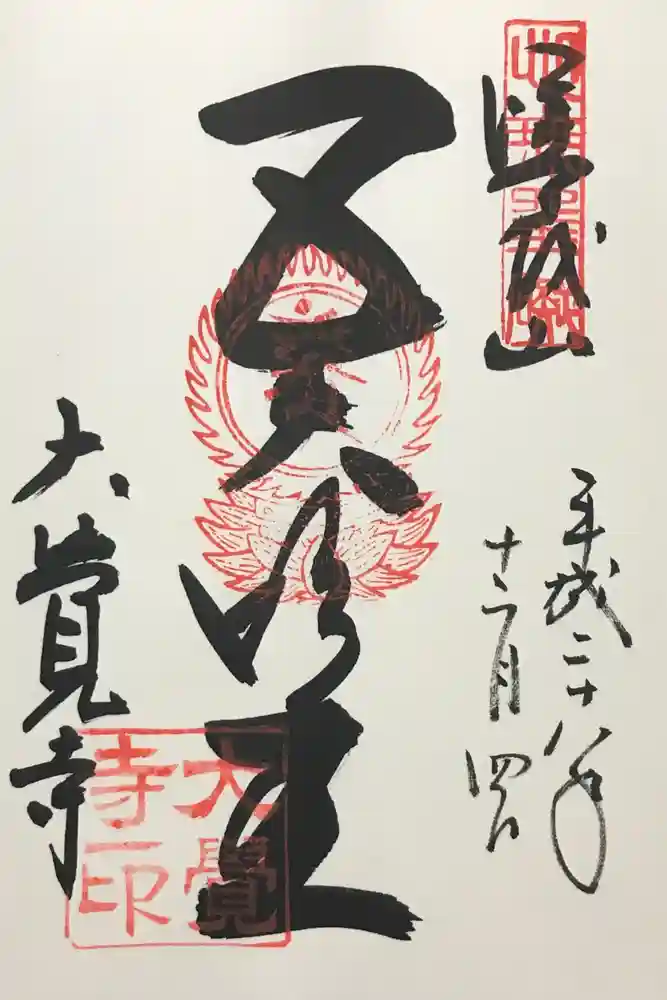 嵯峨山
平成二十八年
十二月四日
五大明王
大覚寺
大覺
寺印